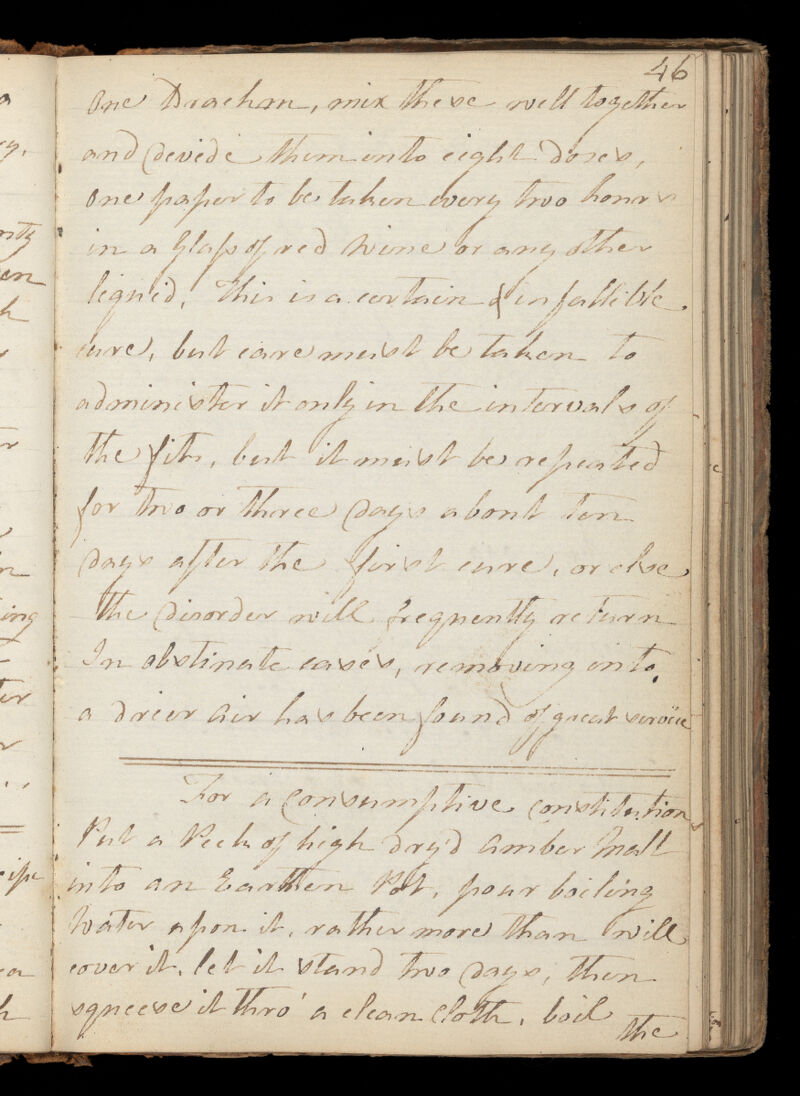 46
One Drachm, mix these well together
and devide them into eight Doses,
one paper to be taken every two hours
in a Glass of red Wine or any other
liquid. This is a certain & infallible
cure, but care must be taken to
administer it only in the intervals of
the fits, but it must be repeated
for two or three Days about ten
Days after the first cure, or else
the disorder will frequently return
In obstinate cases, removing into
a drier Air has been found of great service
For a Consumptive constitution
Put a Peck of high dry'd Amber Malt
into an Earthen Pot, pour boiling
Water upon it, rather more than will
cover it, let it stand two Days, then
squeese it thro' a clean Cloth, boil
the